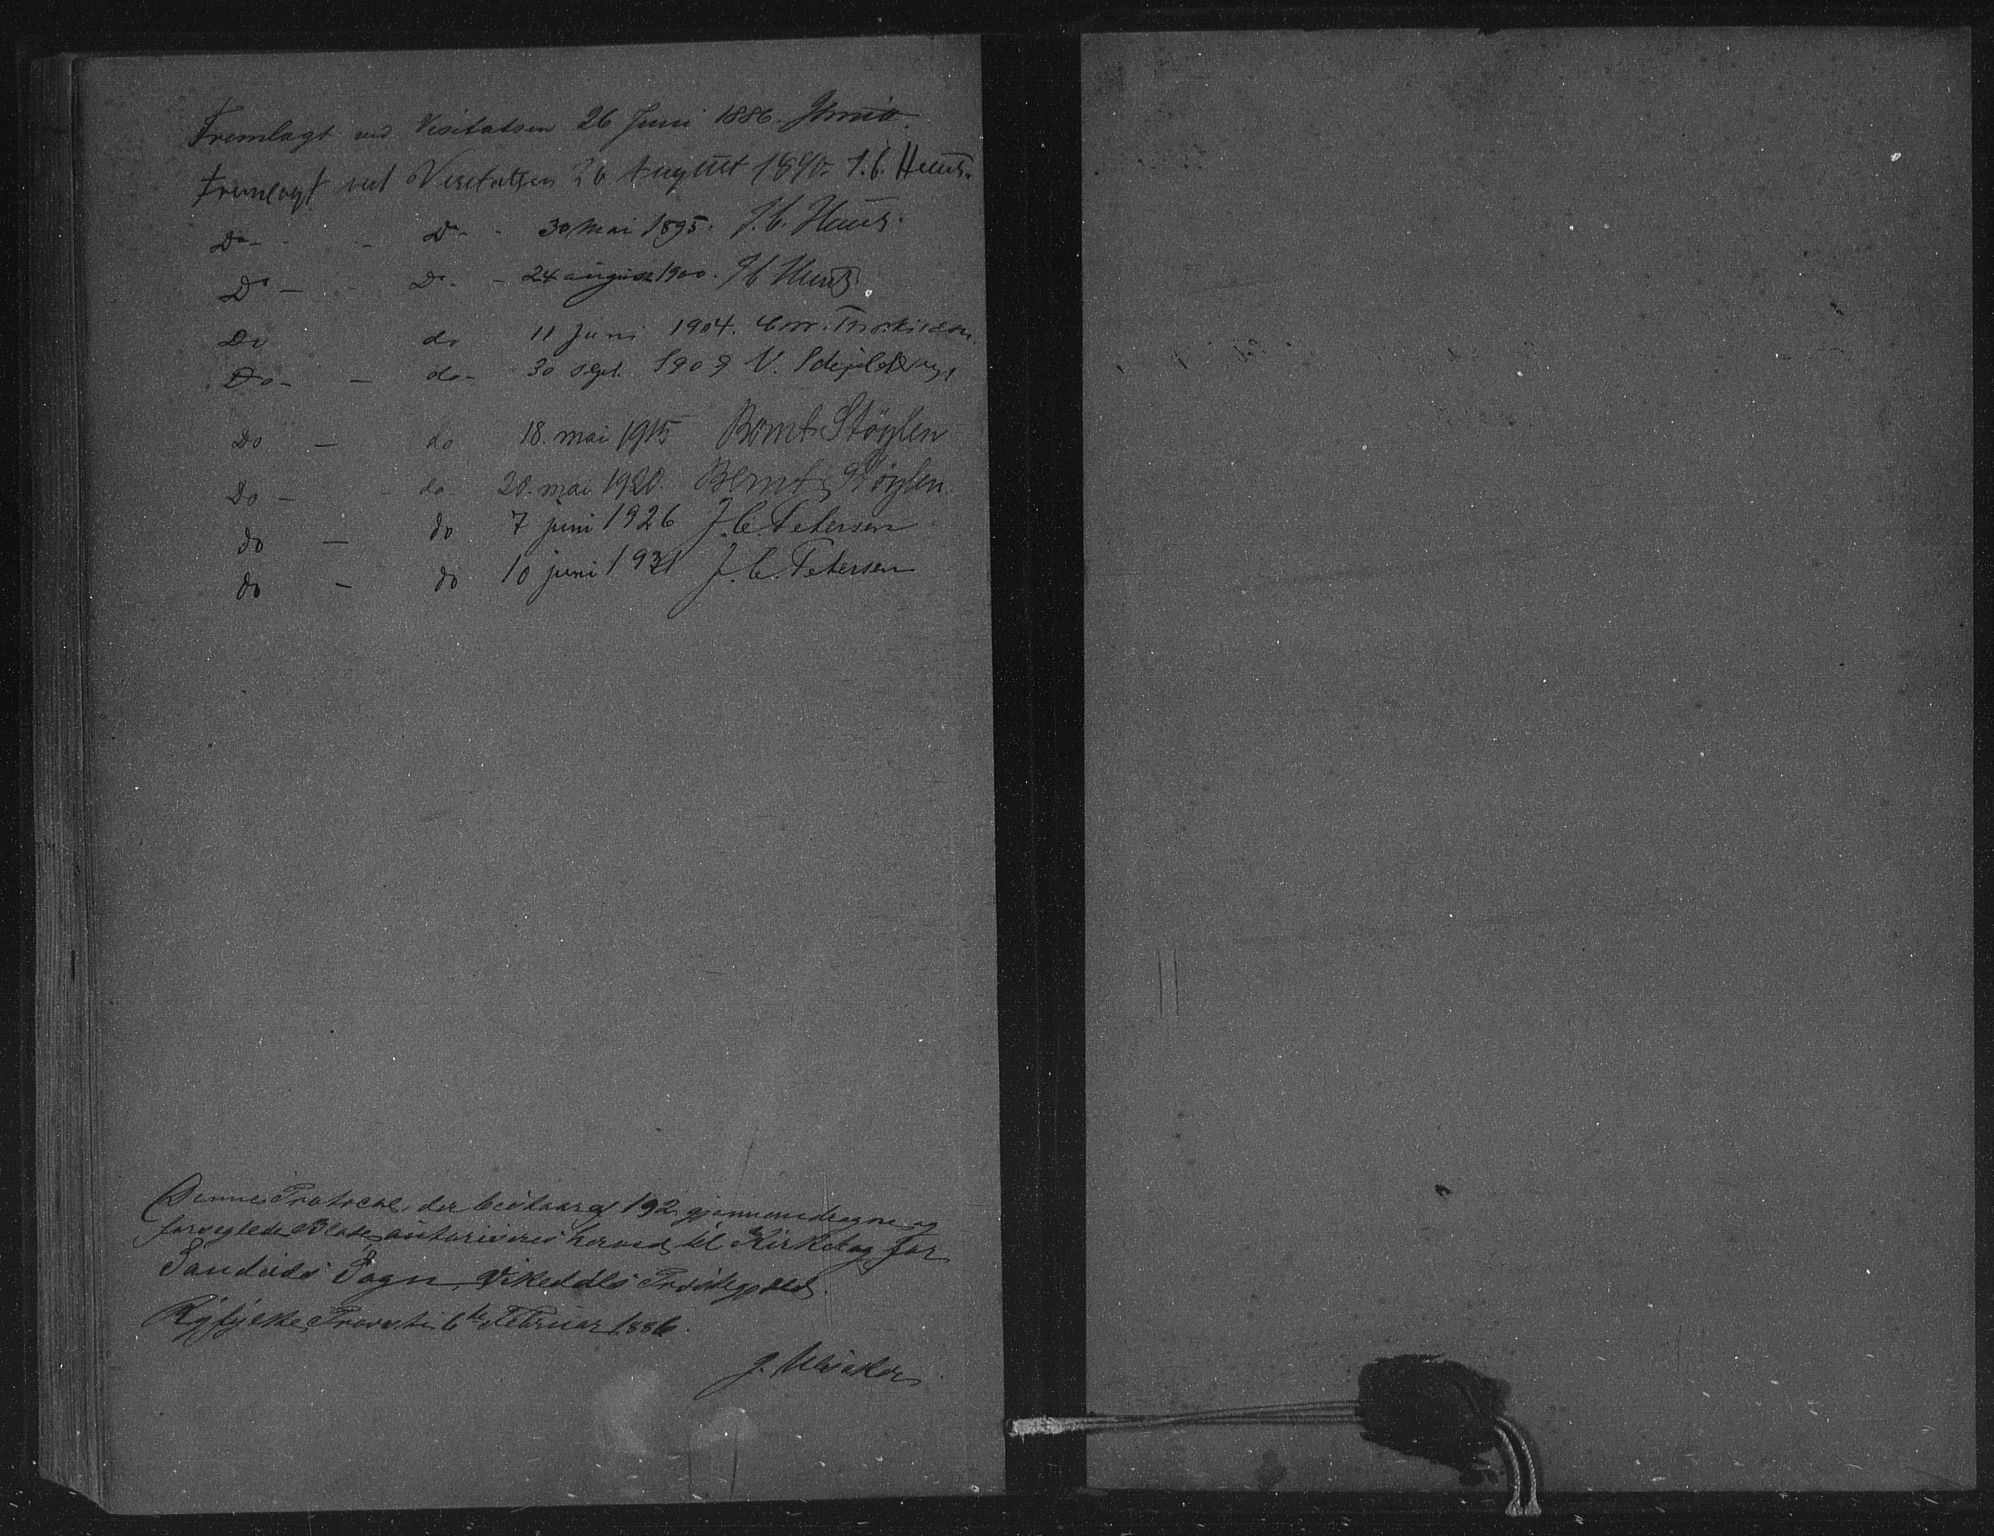 Fremlagt ved Visitatsen 26 Juni 1886.
Fremlagt ved Visitatsen 26 August 1890. J. C. Heuch.
Do - - Do - - 30 Mai 1895. J. C. Heuch.
Do - - Do - - 24 august 1900. J C Heuch
Do do 11 Juni 1904. Chr. Thorkildsen.
Do - - do - 30 sept. 1909 V. Schjeldrup
Do - do 18. mai 1915 Bernt Støylen
Do - - do - 20. mai 1920. Bernt Støylen
do - do 7 juni 1926 J. C. Petersen
do - do 10 juni 1931 J. C. Petersen
Denne Protocol, der bestaar af 192 gjennemdragne og
forseglede Blade, autoriseres herved til Kirkebog for
Sandeids Sogn, Vikedals Præstegjeld.
Ryfylke Provsti 6te Februar 1886.